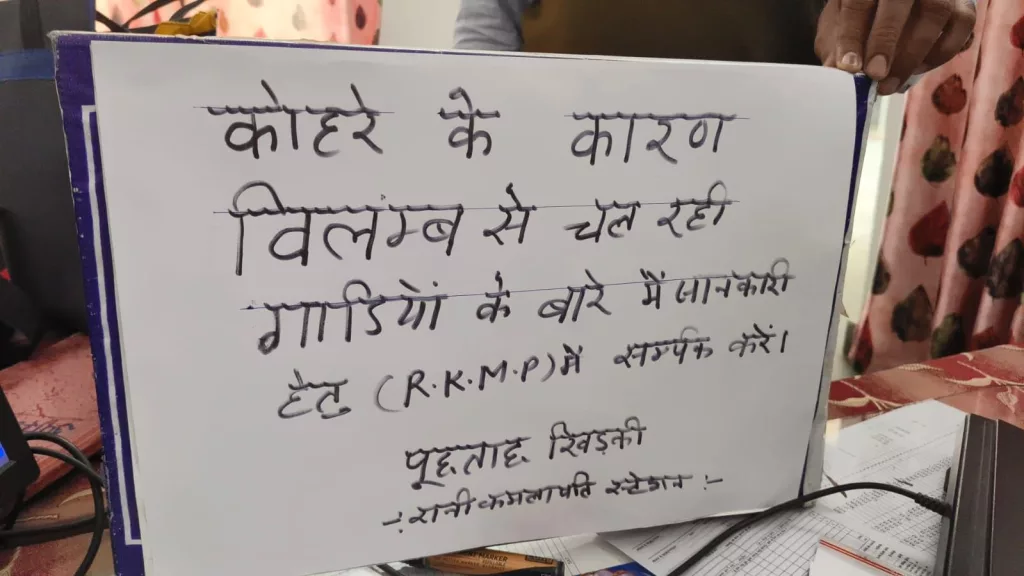 कोहरे के कारण
विलंम्ब से चल रही
गाडियों के बारे में जानकारी
हेतु (R.K.M.P) में सर्म्पक करें।
पूछताछ खिड़की
-: रानी कमलापति स्टेशन :-
MARKER